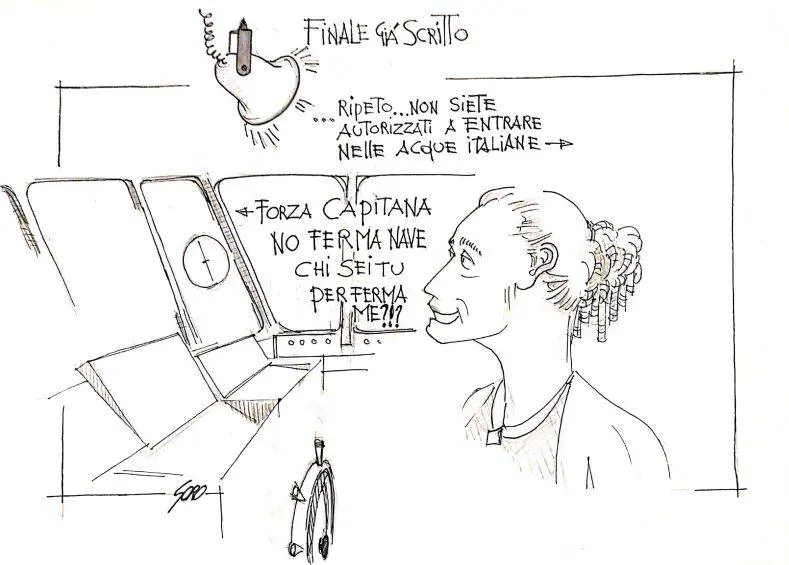 FINALE GIÁ SCRITTO
...RIPETO...NON SIETE
AUTORIZZATI A ENTRARE
NELLE ACQUE ITALIANE
FORZA CAPITANA
NO FERMA NAVE
CHI SEI TU
PER FERMA
ME?!?
SORO